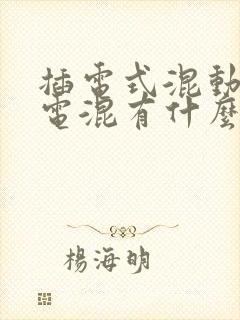 插電式混動
電混有什麼
楊海明